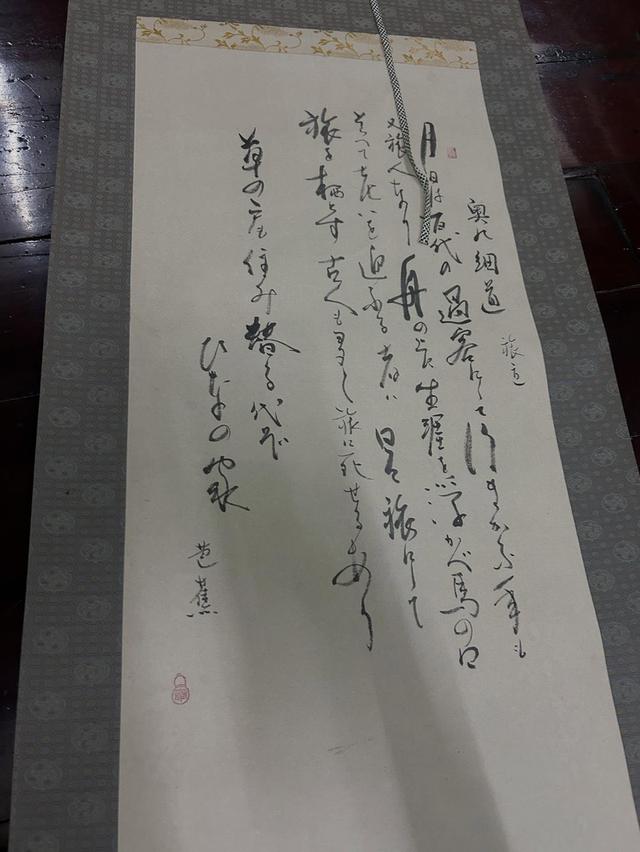 奥の細道
旅立
月日は百代の過客にして行きかふ年も
又旅人なり舟の上生涯を浮かべ馬の口
とらへて老いを迎ふる者は日々旅にして
旅を栖とす古人も多く旅に死せるもあり
草の戸も住み替る代ぞ
ひなの家
芭蕉